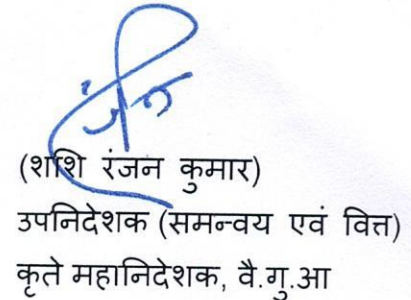 (शशि रंजन कुमार)
उपनिदेशक (समन्वय एवं वित्त)
कृते महानिदेशक, वै.गु.आ